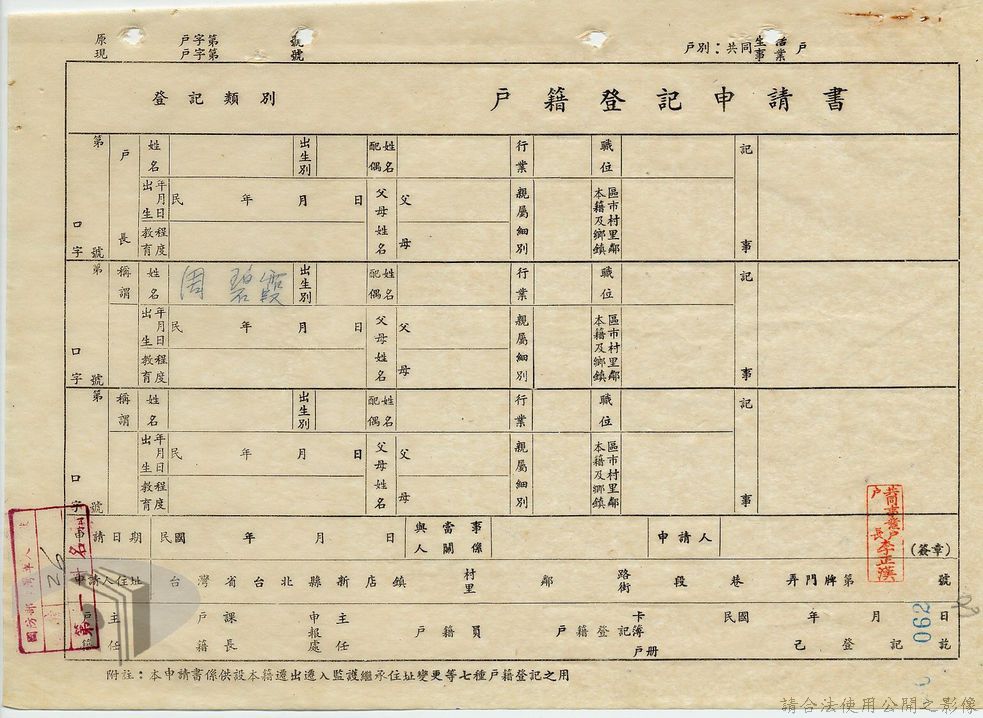 原 戶字第 號
現 戶字第 號
戶別：共同生活事業戶
登記類別
戶籍登記申請書
第 口字 號
戶長
姓名
出生別
配偶姓名
行業
職位
記事
出生年月日
民 年 月 日
父母姓名
父
母
親屬細別
本籍及鄉鎮區市村里鄰
教育程度
第 口字 號
稱謂
姓名
周碧霞
出生別
配偶姓名
行業
職位
記事
出生年月日
民 年 月 日
父母姓名
父
母
親屬細別
本籍及鄉鎮區市村里鄰
教育程度
第 口字 號
稱謂
姓名
出生別
配偶姓名
行業
職位
記事
出生年月日
民 年 月 日
父母姓名
父
母
親屬細別
本籍及鄉鎮區市村里鄰
教育程度
申請日期 民國 年 月 日
與當事人關係
申請人
共同事業戶戶長李正漢
(簽章)
申請人住址 台灣省台北縣新店鎮 村里 鄰 路街 段 巷 弄門牌第 號
戶籍主任 戶籍課長 申報處主任 戶籍員 戶籍登記卡簿戶冊 民國 年 月 日己登記訖
062
附註：本申請書係供設本籍遷出遷入監護繼承住址變更等七種戶籍登記之用
請合法使用公開之影像